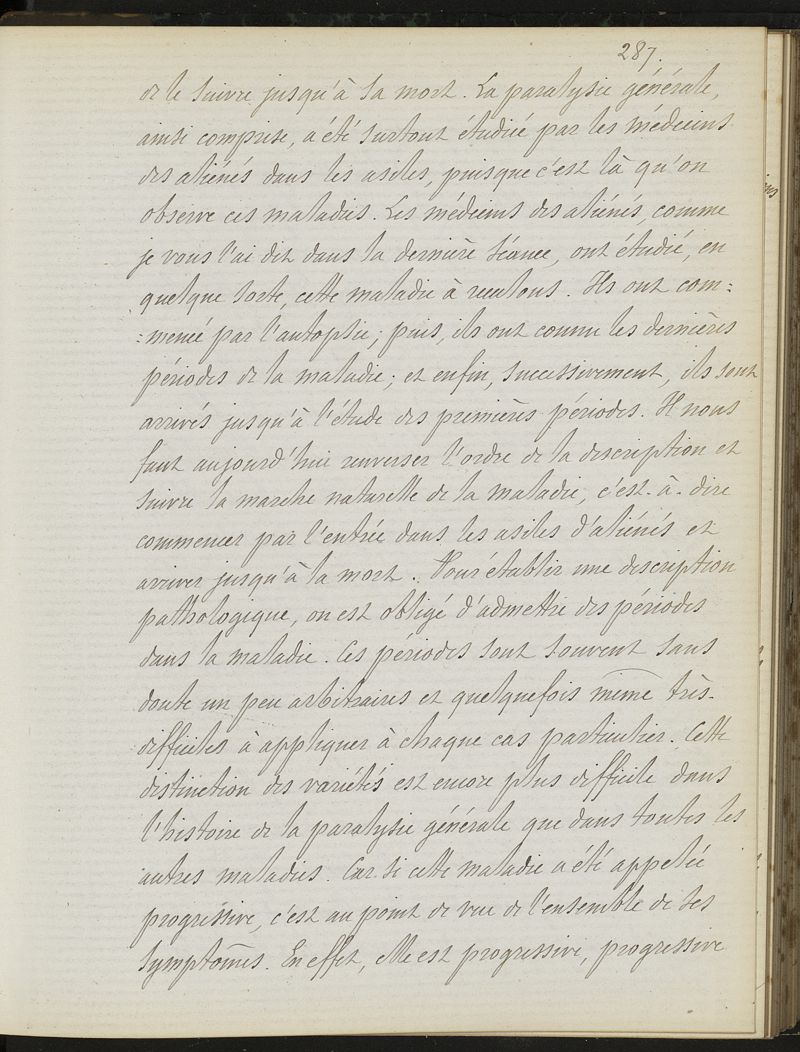 287.
de le suivre jusqu'à sa mort. La paralysie générale,
ainsi comprise, a été surtout étudiée par les médecins
des aliénés dans les asiles, puisque c'est là qu'on
observe ces maladies. Les médecins des aliénés, comme
je vous l'ai dit dans la dernière séance, ont étudié, en
quelque sorte, cette maladie à reculons. Ils ont com=
=mencé par l'autopsie; puis, ils ont connu les dernières
périodes de la maladie; et enfin, successivement, ils sont
arrivés jusqu'à l'étude des premières périodes. Il nous
faut aujourd'hui renverser l'ordre de la description et
suivre la marche naturelle de la maladie, c'est-à-dire
commencer par l'entrée dans les asiles d'aliénés et
arriver jusqu'à la mort. Pour établir une description
pathologique, on est obligé d'admettre des périodes
dans la maladie. Ces périodes sont souvent sans
doute un peu arbitraires et quelquefois même très-
difficiles à appliquer à chaque cas particulier. Cette
distinction des variétés est encore plus difficile dans
l'histoire de la paralysie générale que dans toutes les
autres maladies. Car si cette maladie a été appelée
progressive, c'est au point de vue de l'ensemble de ses
symptômes. En effet, elle est progressive, progressive